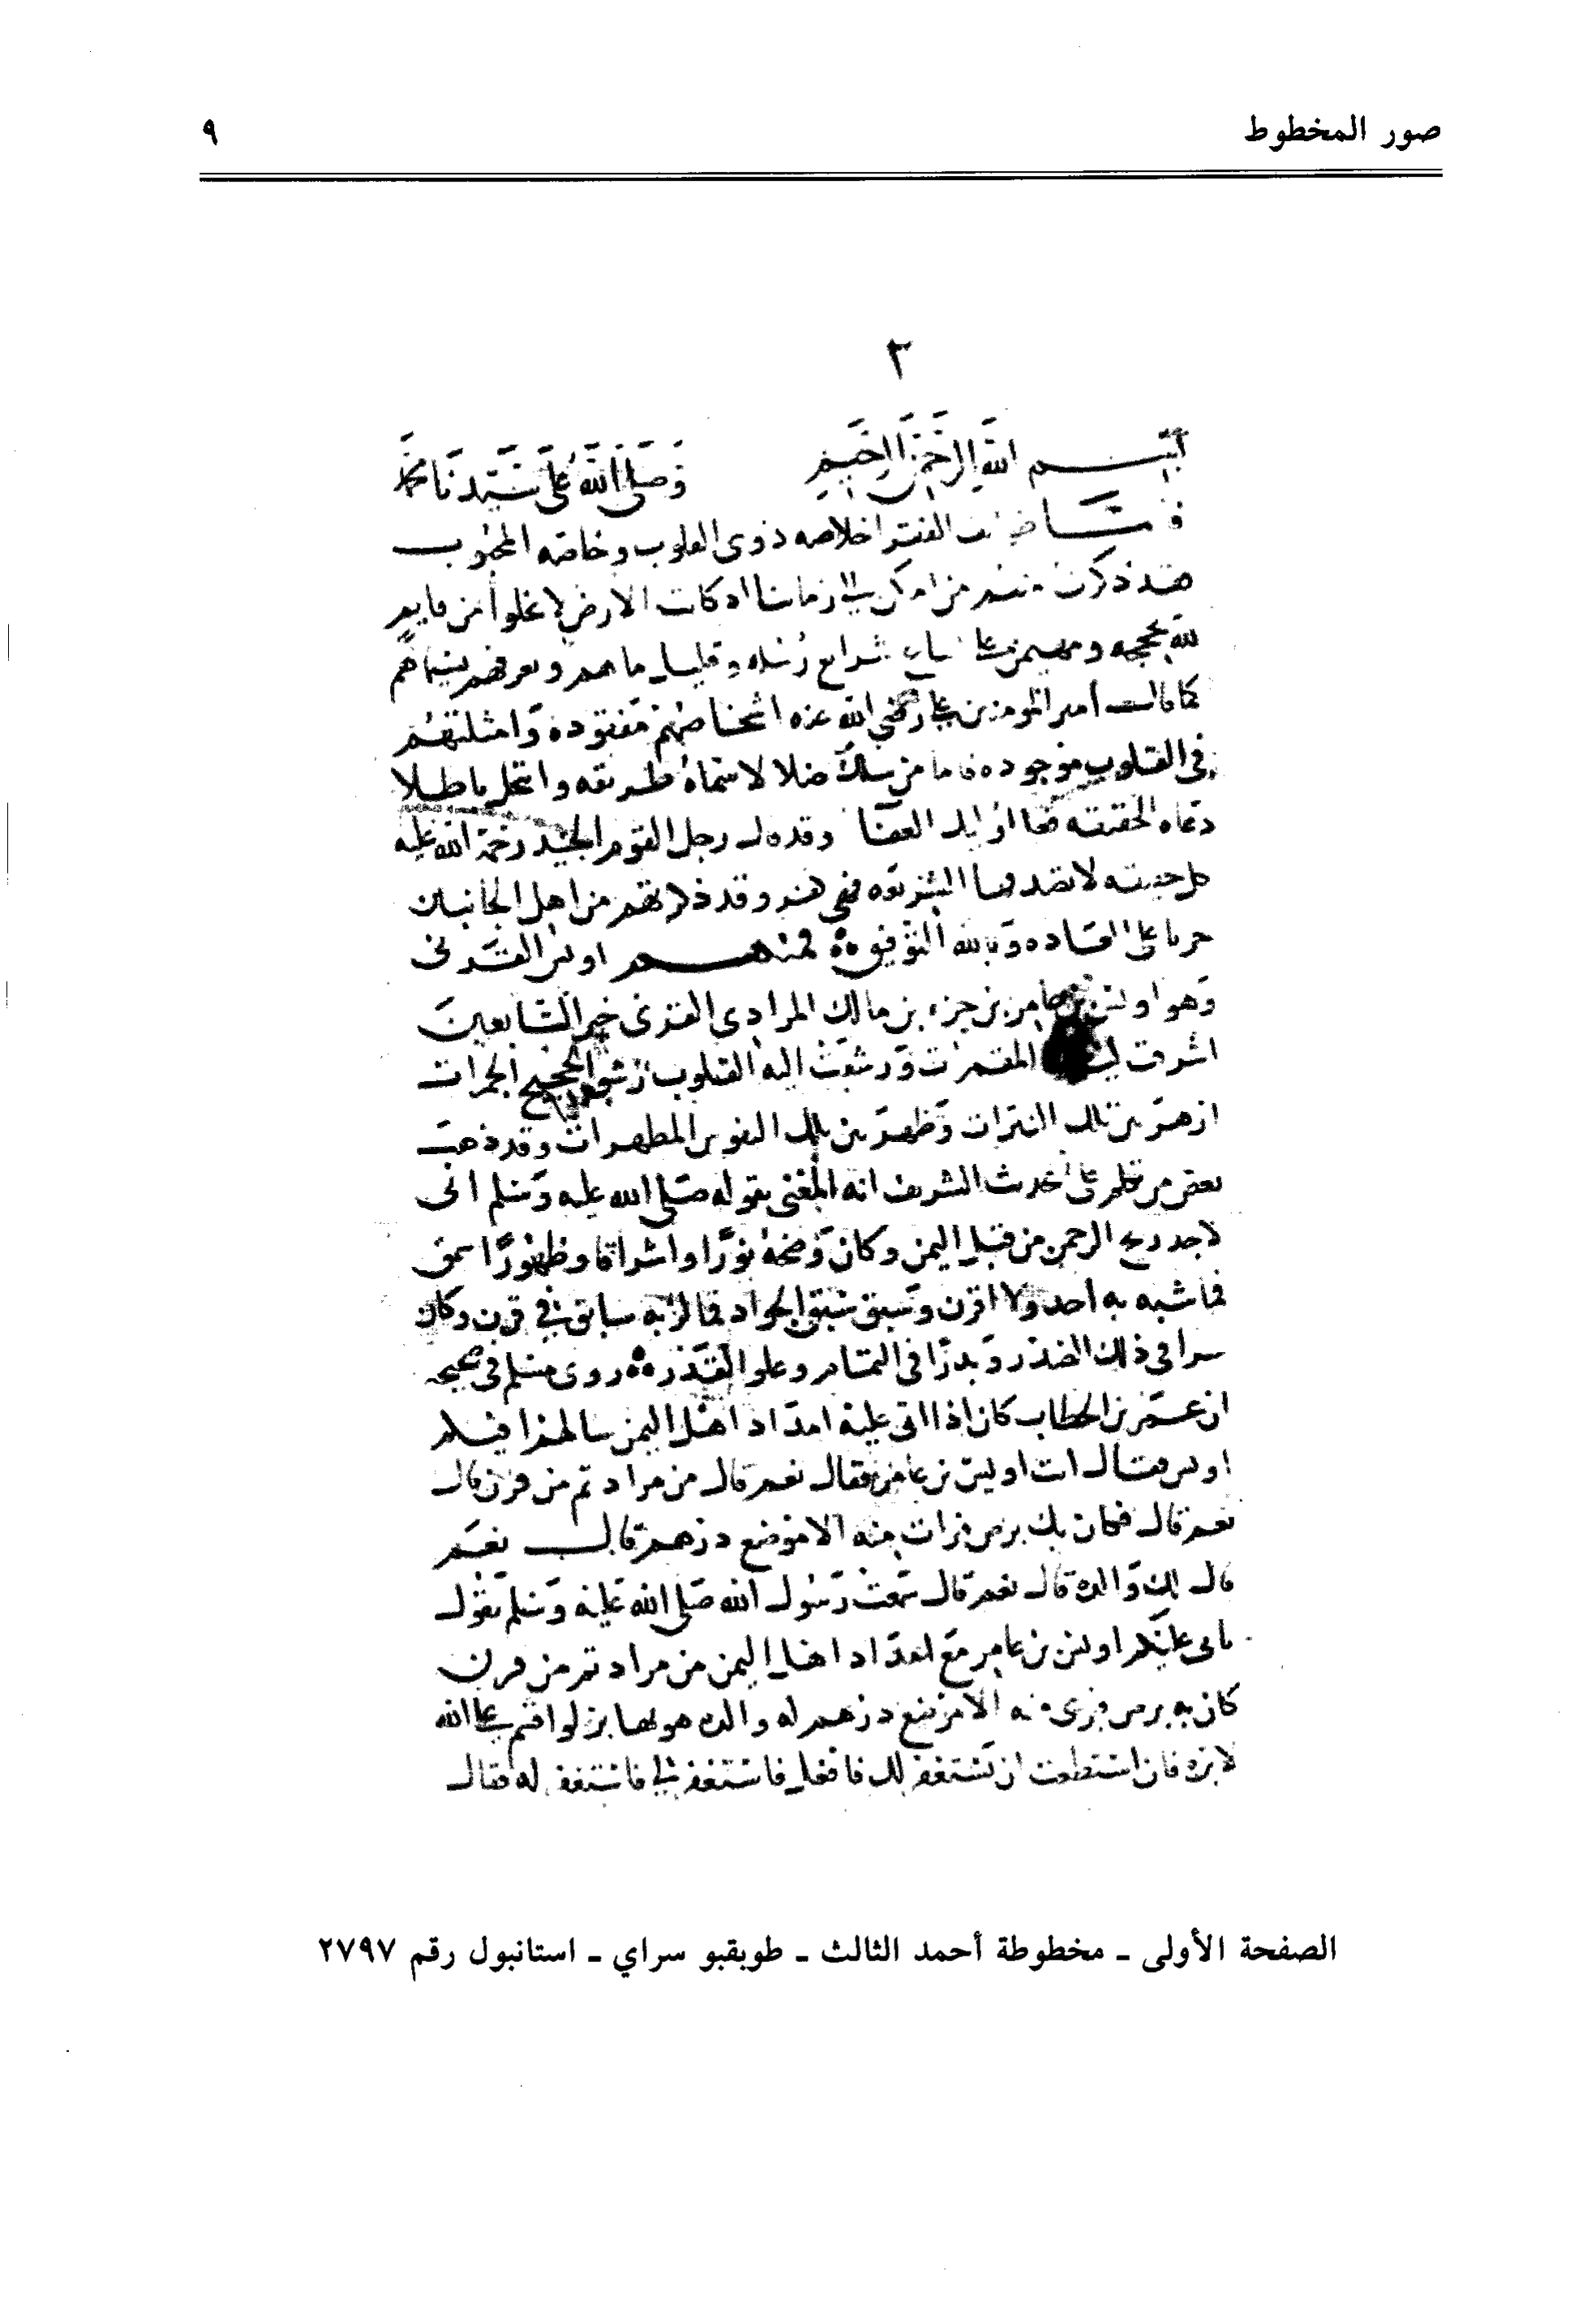 صور المخطوط
٩
٢
بسم الله الرحمن الرحيم وصلى الله على سيدنا محمد
الفقرا خلاصه ذوى القلوب وخاصه المحبوب
فقد ذكرت منهم من امكن الى زماننا اذ كانت الارض لا تخلوا من قايم
لله بحججه شرايع رسله وقليل ما هم ونعرفهم بسيماهم
كما قالت أمير المومنين علي رضي الله عنه اشخاصهم مفقوده وامثلتهم
في القلوب موجوده فاما من سلك ضلالا سماه طريقه وانتحل باطلا
دعاه الحقيقه وقد قال رجل القوم الجنيد رحمة الله عليه
كل حقيقه لا الشريعه فهي وقد من اهل الجانبين
جريا على العاده وبالله التوفيق فمنهم اويس القرنى
وهو اويس بن عامر بن جزء بن مالك المرادي القرنى خير التابعين
اشرقت المقمرات ورشقت اليه القلوب رشق الحجيج الجمرات
ازهر بين تلك النيرات وظهر بين تلك النفوس المطهرات وقد ذهب
بعض من تكلم على الحديث الشريف انه المعنى بقوله صلى الله عليه وسلم انى
لاجد ريح الرحمن من قبل اليمن وكان وضحه نورا واشراقا وظهورا سمق
فما شبه به احد ولا اقرن وسبق سبق الجواد فما لز به سابق في قرن وكان
سرا في ذلك الصدر وبدرا في التمام وعلو القدر روى مسلم في صحيحه
ان عمر بن الخطاب كان اذا اتى عليه امداد اهل اليمن سالهم افيكم
اويس فقال انت اويس بن عامر فقال نعم قال من مراد ثم من قرن قال
نعم قال فكان بك برص فبرات منه الا موضع درهم قال نعم
قال لك والده قال نعم قال سمعت رسول الله صلى الله عليه وسلم يقول
ياتى عليكم اويس بن عامر مع امداد اهل اليمن من مراد ثم من قرن
كان به برص فبرى منه الا موضع درهم له والده هو بها بر لو اقسم على الله
لابره فان استطعت ان يستغفر لك فافعل فاستغفر لي فاستغفر له فقال
الصفحة الأولى ـ مخطوطة أحمد الثالث ـ طوبقبو سراي ـ استانبول رقم ٢٧٩٧